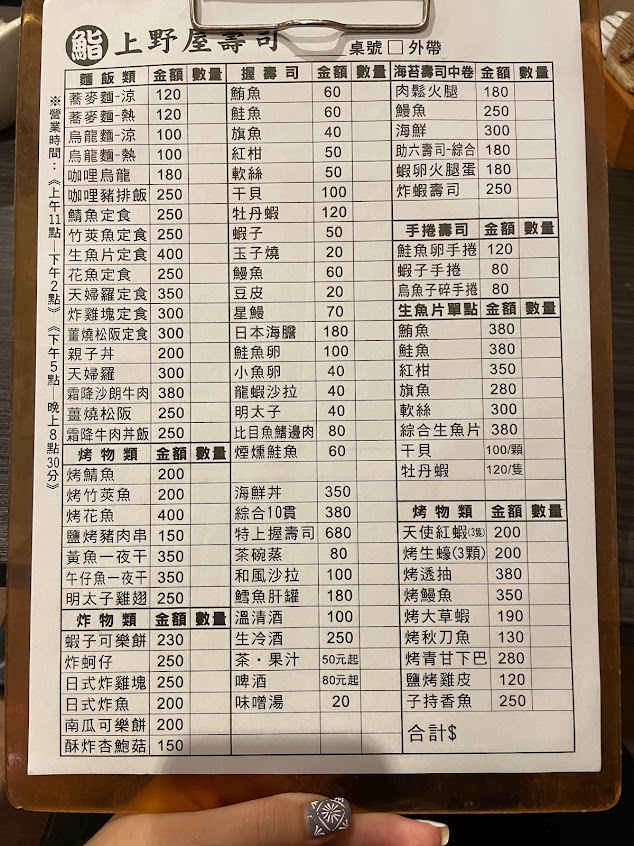 鮨 上野屋壽司 桌號 □外帶
※營業時間：《上午11點—下午2點》《下午5點—晚上8點30分》
麵飯類 金額 數量
蕎麥麵-涼 120
蕎麥麵-熱 120
烏龍麵-涼 100
烏龍麵-熱 100
咖哩烏龍 180
咖哩豬排飯 250
鯖魚定食 250
竹莢魚定食 250
生魚片定食 400
花魚定食 250
天婦羅定食 350
炸雞塊定食 300
薑燒松阪定食 300
親子丼 200
天婦羅 300
霜降沙朗牛肉 380
薑燒松阪 250
霜降牛肉丼飯 250
烤物類 金額 數量
烤鯖魚 200
烤竹莢魚 200
烤花魚 400
鹽烤豬肉串 150
黃魚一夜干 350
午仔魚一夜干 350
明太子雞翅 250
炸物類 金額 數量
蝦子可樂餅 230
炸蚵仔 250
日式炸雞塊 250
日式炸魚 200
南瓜可樂餅 200
酥炸杏鮑菇 150
握壽司 金額 數量
鮪魚 60
鮭魚 60
旗魚 40
紅柑 50
軟絲 50
干貝 100
牡丹蝦 120
蝦子 50
玉子燒 20
鰻魚 60
豆皮 20
星鰻 70
日本海膽 180
鮭魚卵 100
小魚卵 40
龍蝦沙拉 40
明太子 40
比目魚鰭邊肉 80
煙燻鮭魚 60
海鮮丼 350
綜合10貫 380
特上握壽司 680
茶碗蒸 80
和風沙拉 100
鱈魚肝罐 180
溫清酒 100
生冷酒 250
茶・果汁 50元起
啤酒 80元起
味噌湯 20
海苔壽司中卷 金額 數量
肉鬆火腿 180
鰻魚 250
海鮮 300
助六壽司-綜合 180
蝦卵火腿蛋 180
炸蝦壽司 250
手捲壽司 金額 數量
鮭魚卵手捲 120
蝦子手捲 80
烏魚子碎手捲 80
生魚片單點 金額 數量
鮪魚 380
鮭魚 380
紅柑 350
旗魚 280
軟絲 300
綜合生魚片 380
干貝 100/顆
牡丹蝦 120/隻
烤物類 金額 數量
天使紅蝦(3隻) 200
烤生蠔(3顆) 200
烤透抽 380
烤鰻魚 350
烤大草蝦 190
烤秋刀魚 130
烤青甘下巴 280
鹽烤雞皮 120
子持香魚 250
合計$